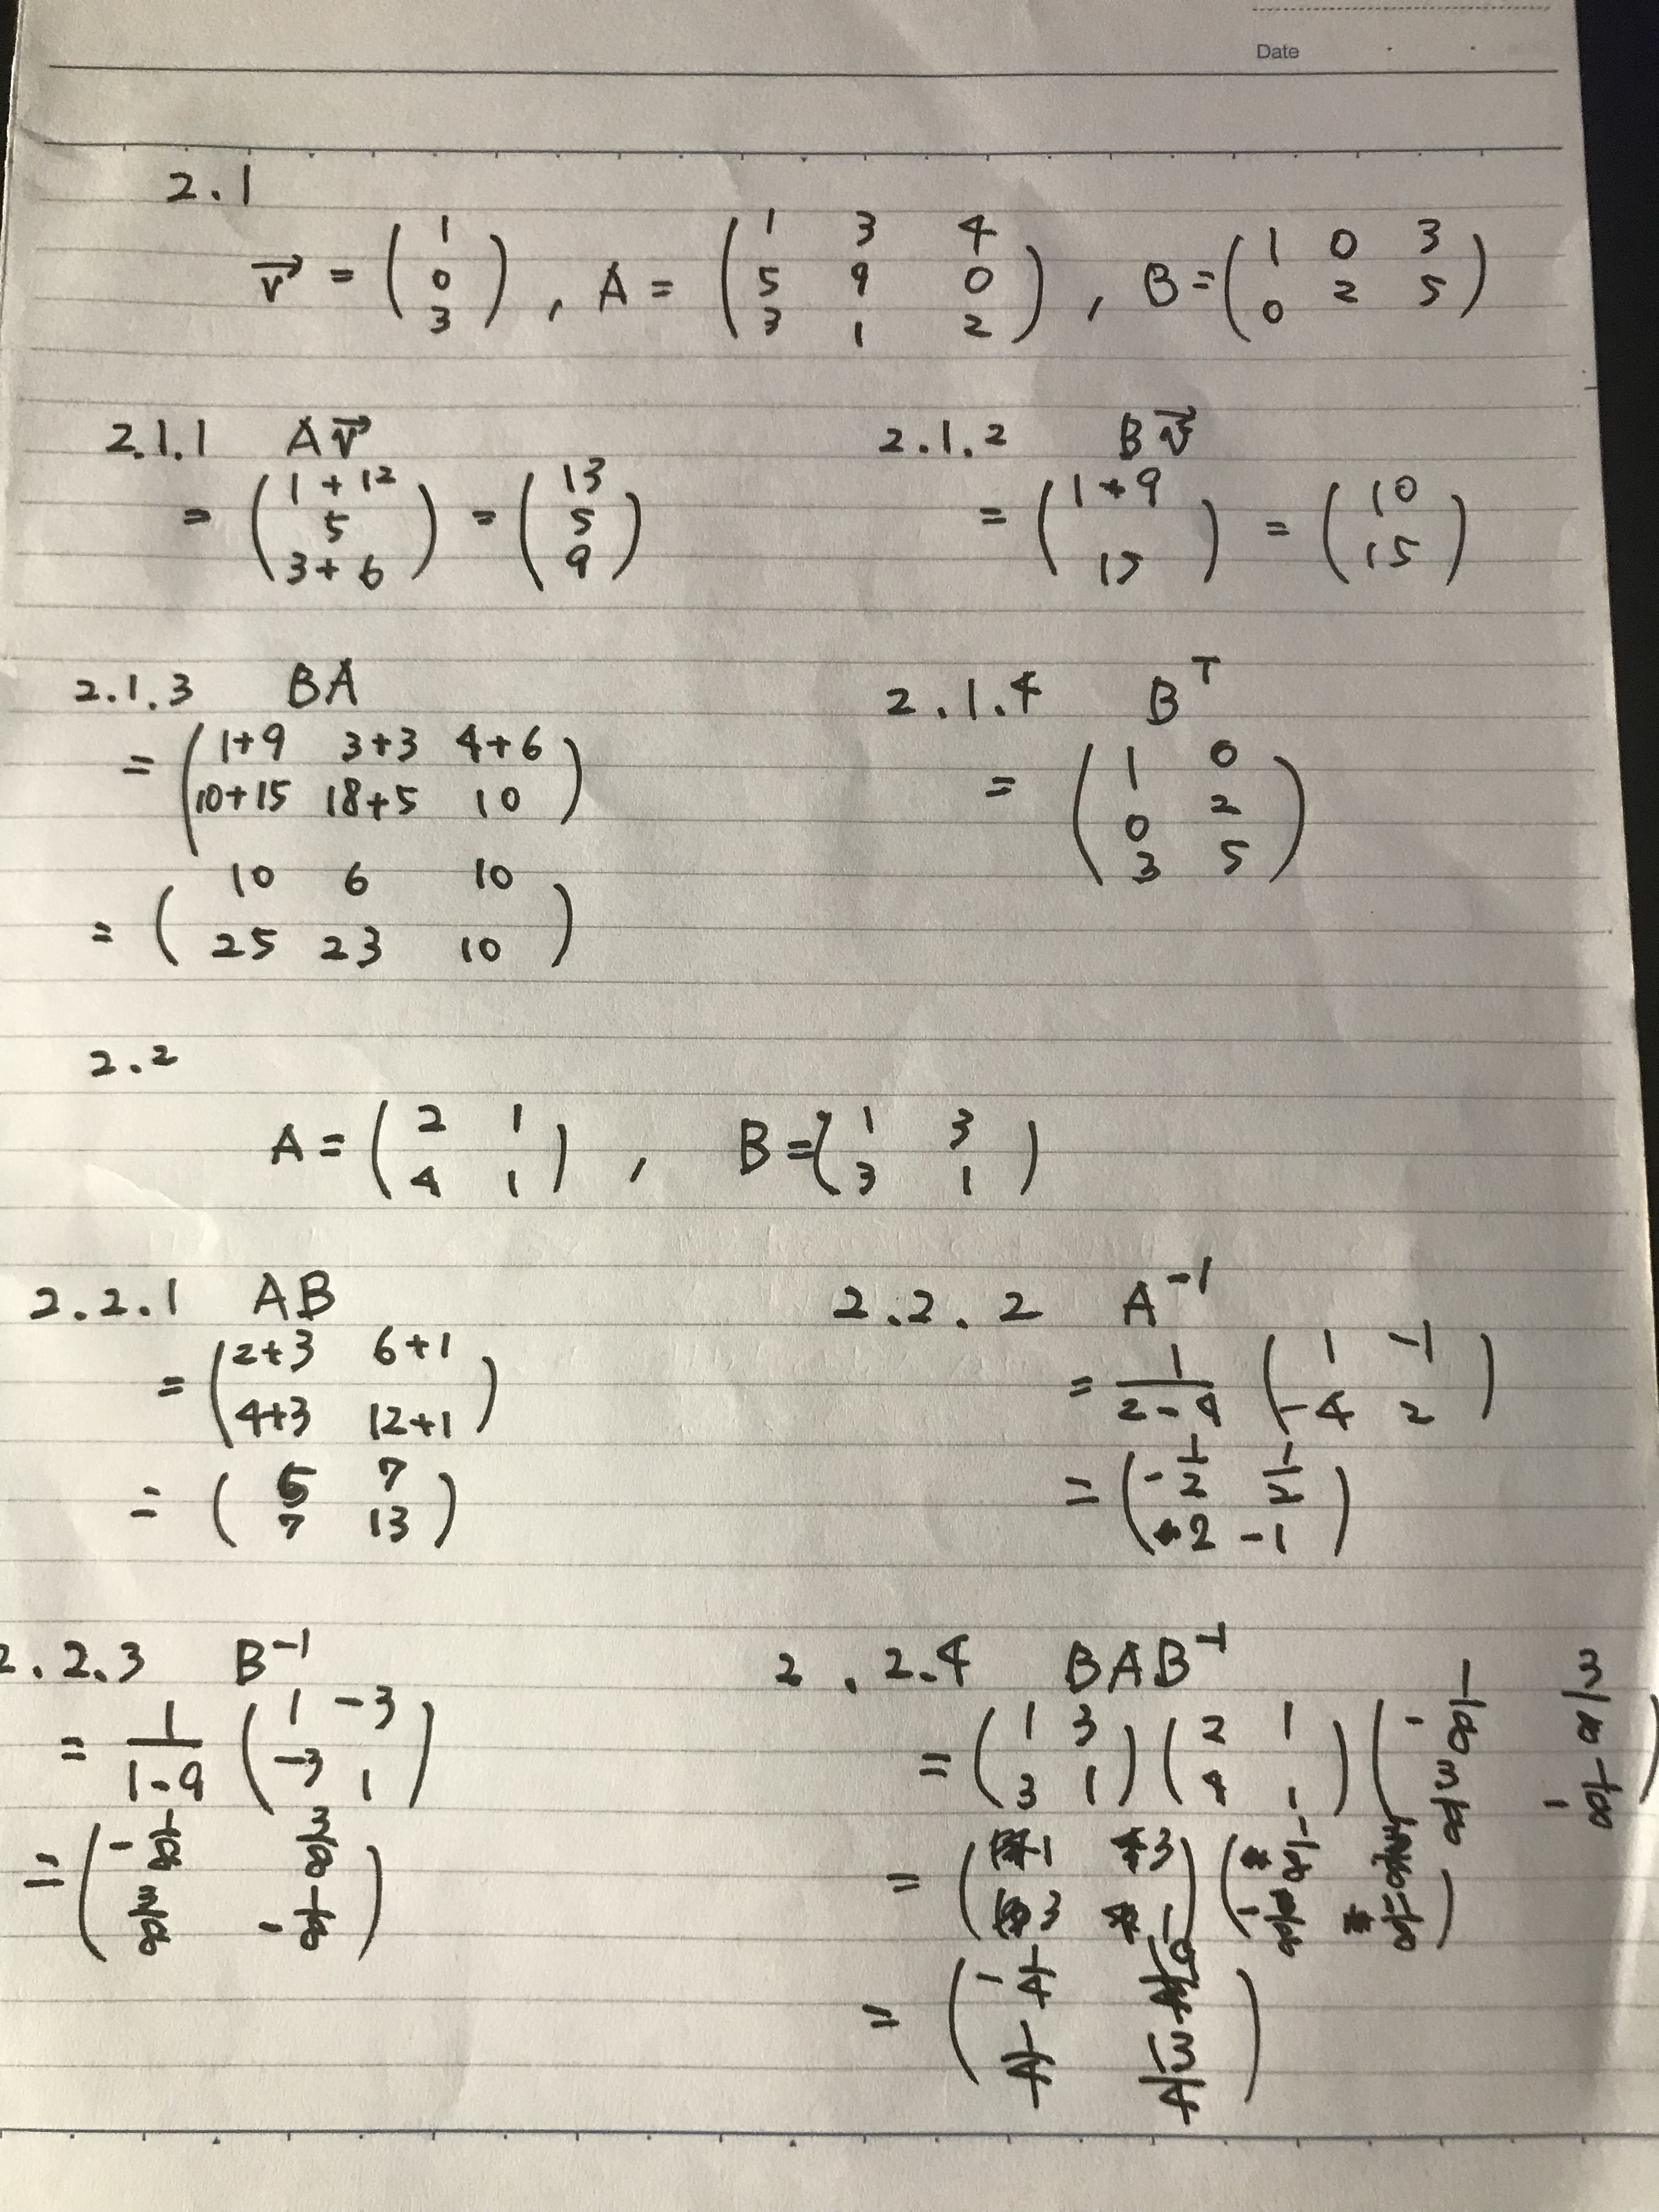 Date
2.1
v⃗ = ( 1 0 3 ) , A = ( 1 3 4 5 9 0 3 1 2 ) , B = ( 1 0 3 0 2 5 )
2.1.1 Av⃗
= ( 1 + 12 5 3 + 6 ) = ( 13 5 9 )
2.1.2 Bv⃗
= ( 1 + 9 15 ) = ( 10 15 )
2.1.3 BA
= ( 1+9 3+3 4+6 10+15 18+5 10 )
= ( 10 6 10 25 23 10 )
2.1.4 Bᵀ
= ( 1 0 0 2 3 5 )
2.2
A = ( 2 1 4 1 ) , B = ( 1 3 3 1 )
2.2.1 AB
= ( 2+3 6+1 4+3 12+1 )
= ( 5 7 7 13 )
2.2.2 A⁻¹
= 1/(2-4) ( 1 -1 -4 2 )
= ( -1/2 1/2 2 -1 )
2.2.3 B⁻¹
= 1/(1-9) ( 1 -3 -3 1 )
= ( -1/8 3/8 3/8 -1/8 )
2.2.4 BAB⁻¹
= ( 1 3 3 1 ) ( 2 1 4 1 ) ( -1/8 3/8 3/8 -1/8 )